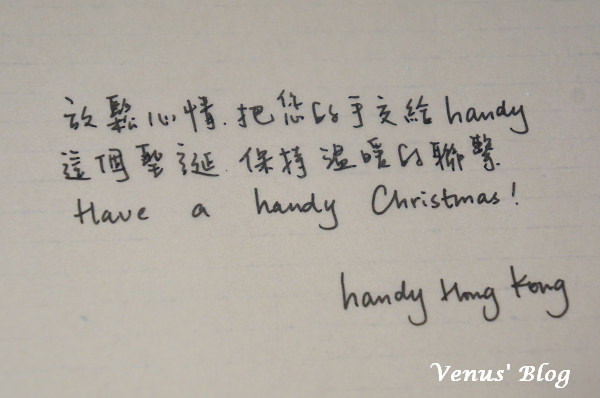 放鬆心情.把您的手交給handy
這個聖誕.保持溫暖的聯繫
Have a handy Christmas!
handy Hong Kong
Venus' Blog